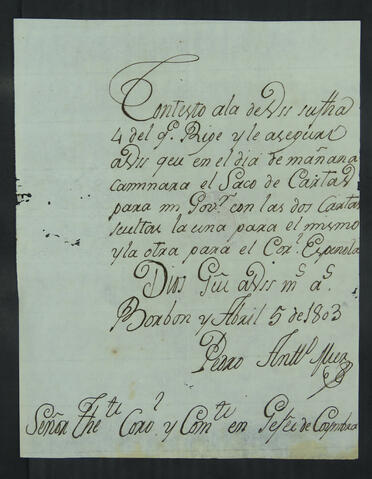 Contesto ala de Vs su fha
4 del q.e Rige y le aseguro
a Vs que en el dia de mañana
caminara el Saco de Cartas
para mi Gov.or con las dos Cartas
sueltas la una para el mismo
y la otra para el Cor.l Espinola
Dios Gue a Vs m.s a.s
Borbon y Abril 5 de 1803
Pedro Ant.o
Señor The.te Coro.l y Com.te en Gefe de Coymbra